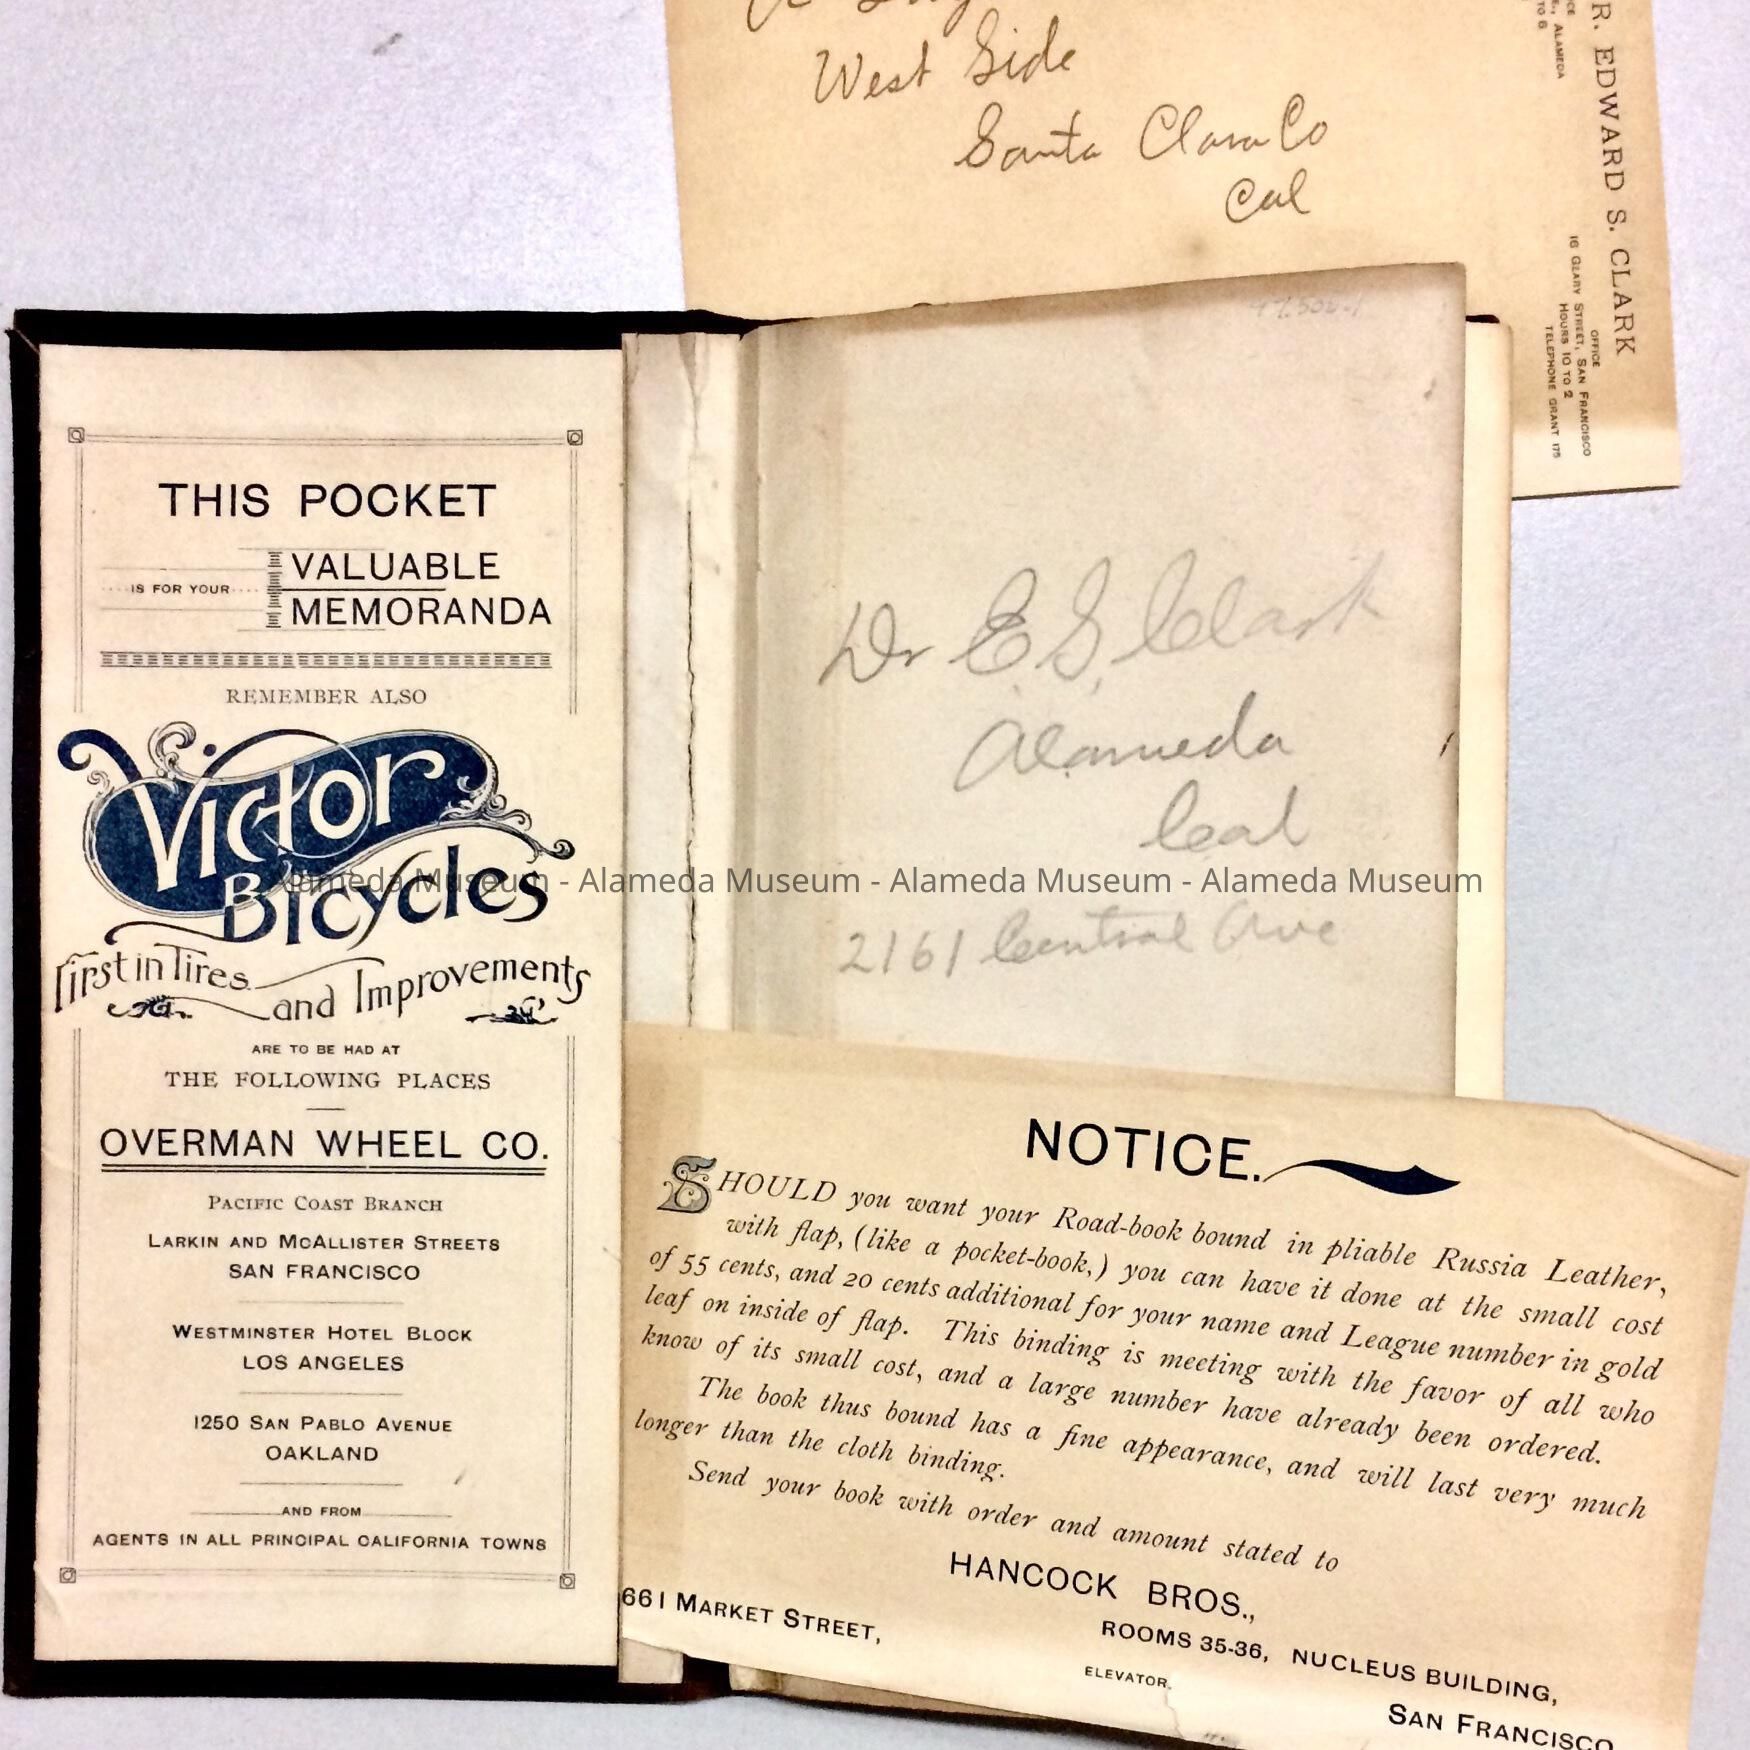 West Side
Santa Clara Co
Cal
R. EDWARD S. CLARK
ALAMEDA
TO 6
OFFICE
16 GEARY STREET, SAN FRANCISCO
HOURS 10 TO 2
TELEPHONE GRANT 175
THIS POCKET
IS FOR YOUR
VALUABLE
MEMORANDA
REMEMBER ALSO
Victor
Bicycles
First in Tires
and Improvements
ARE TO BE HAD AT
THE FOLLOWING PLACES
OVERMAN WHEEL CO.
PACIFIC COAST BRANCH
LARKIN AND MCALLISTER STREETS
SAN FRANCISCO
WESTMINSTER HOTEL BLOCK
LOS ANGELES
1250 SAN PABLO AVENUE
OAKLAND
AND FROM
AGENTS IN ALL PRINCIPAL CALIFORNIA TOWNS
Dr E. S. Clark
Alameda
Cal
Alameda Museum - Alameda Museum - Alameda Museum - Alameda Museum
2161 Central Ave
NOTICE.
SHOULD you want your Road-book bound in pliable Russia Leather,
with flap, (like a pocket-book,) you can have it done at the small cost
of 55 cents, and 20 cents additional for your name and League number in gold
leaf on inside of flap. This binding is meeting with the favor of all who
know of its small cost, and a large number have already been ordered.
The book thus bound has a fine appearance, and will last very much
longer than the cloth binding.
Send your book with order and amount stated to
HANCOCK BROS.,
661 MARKET STREET,
ROOMS 35-36, NUCLEUS BUILDING,
ELEVATOR.
SAN FRANCISCO